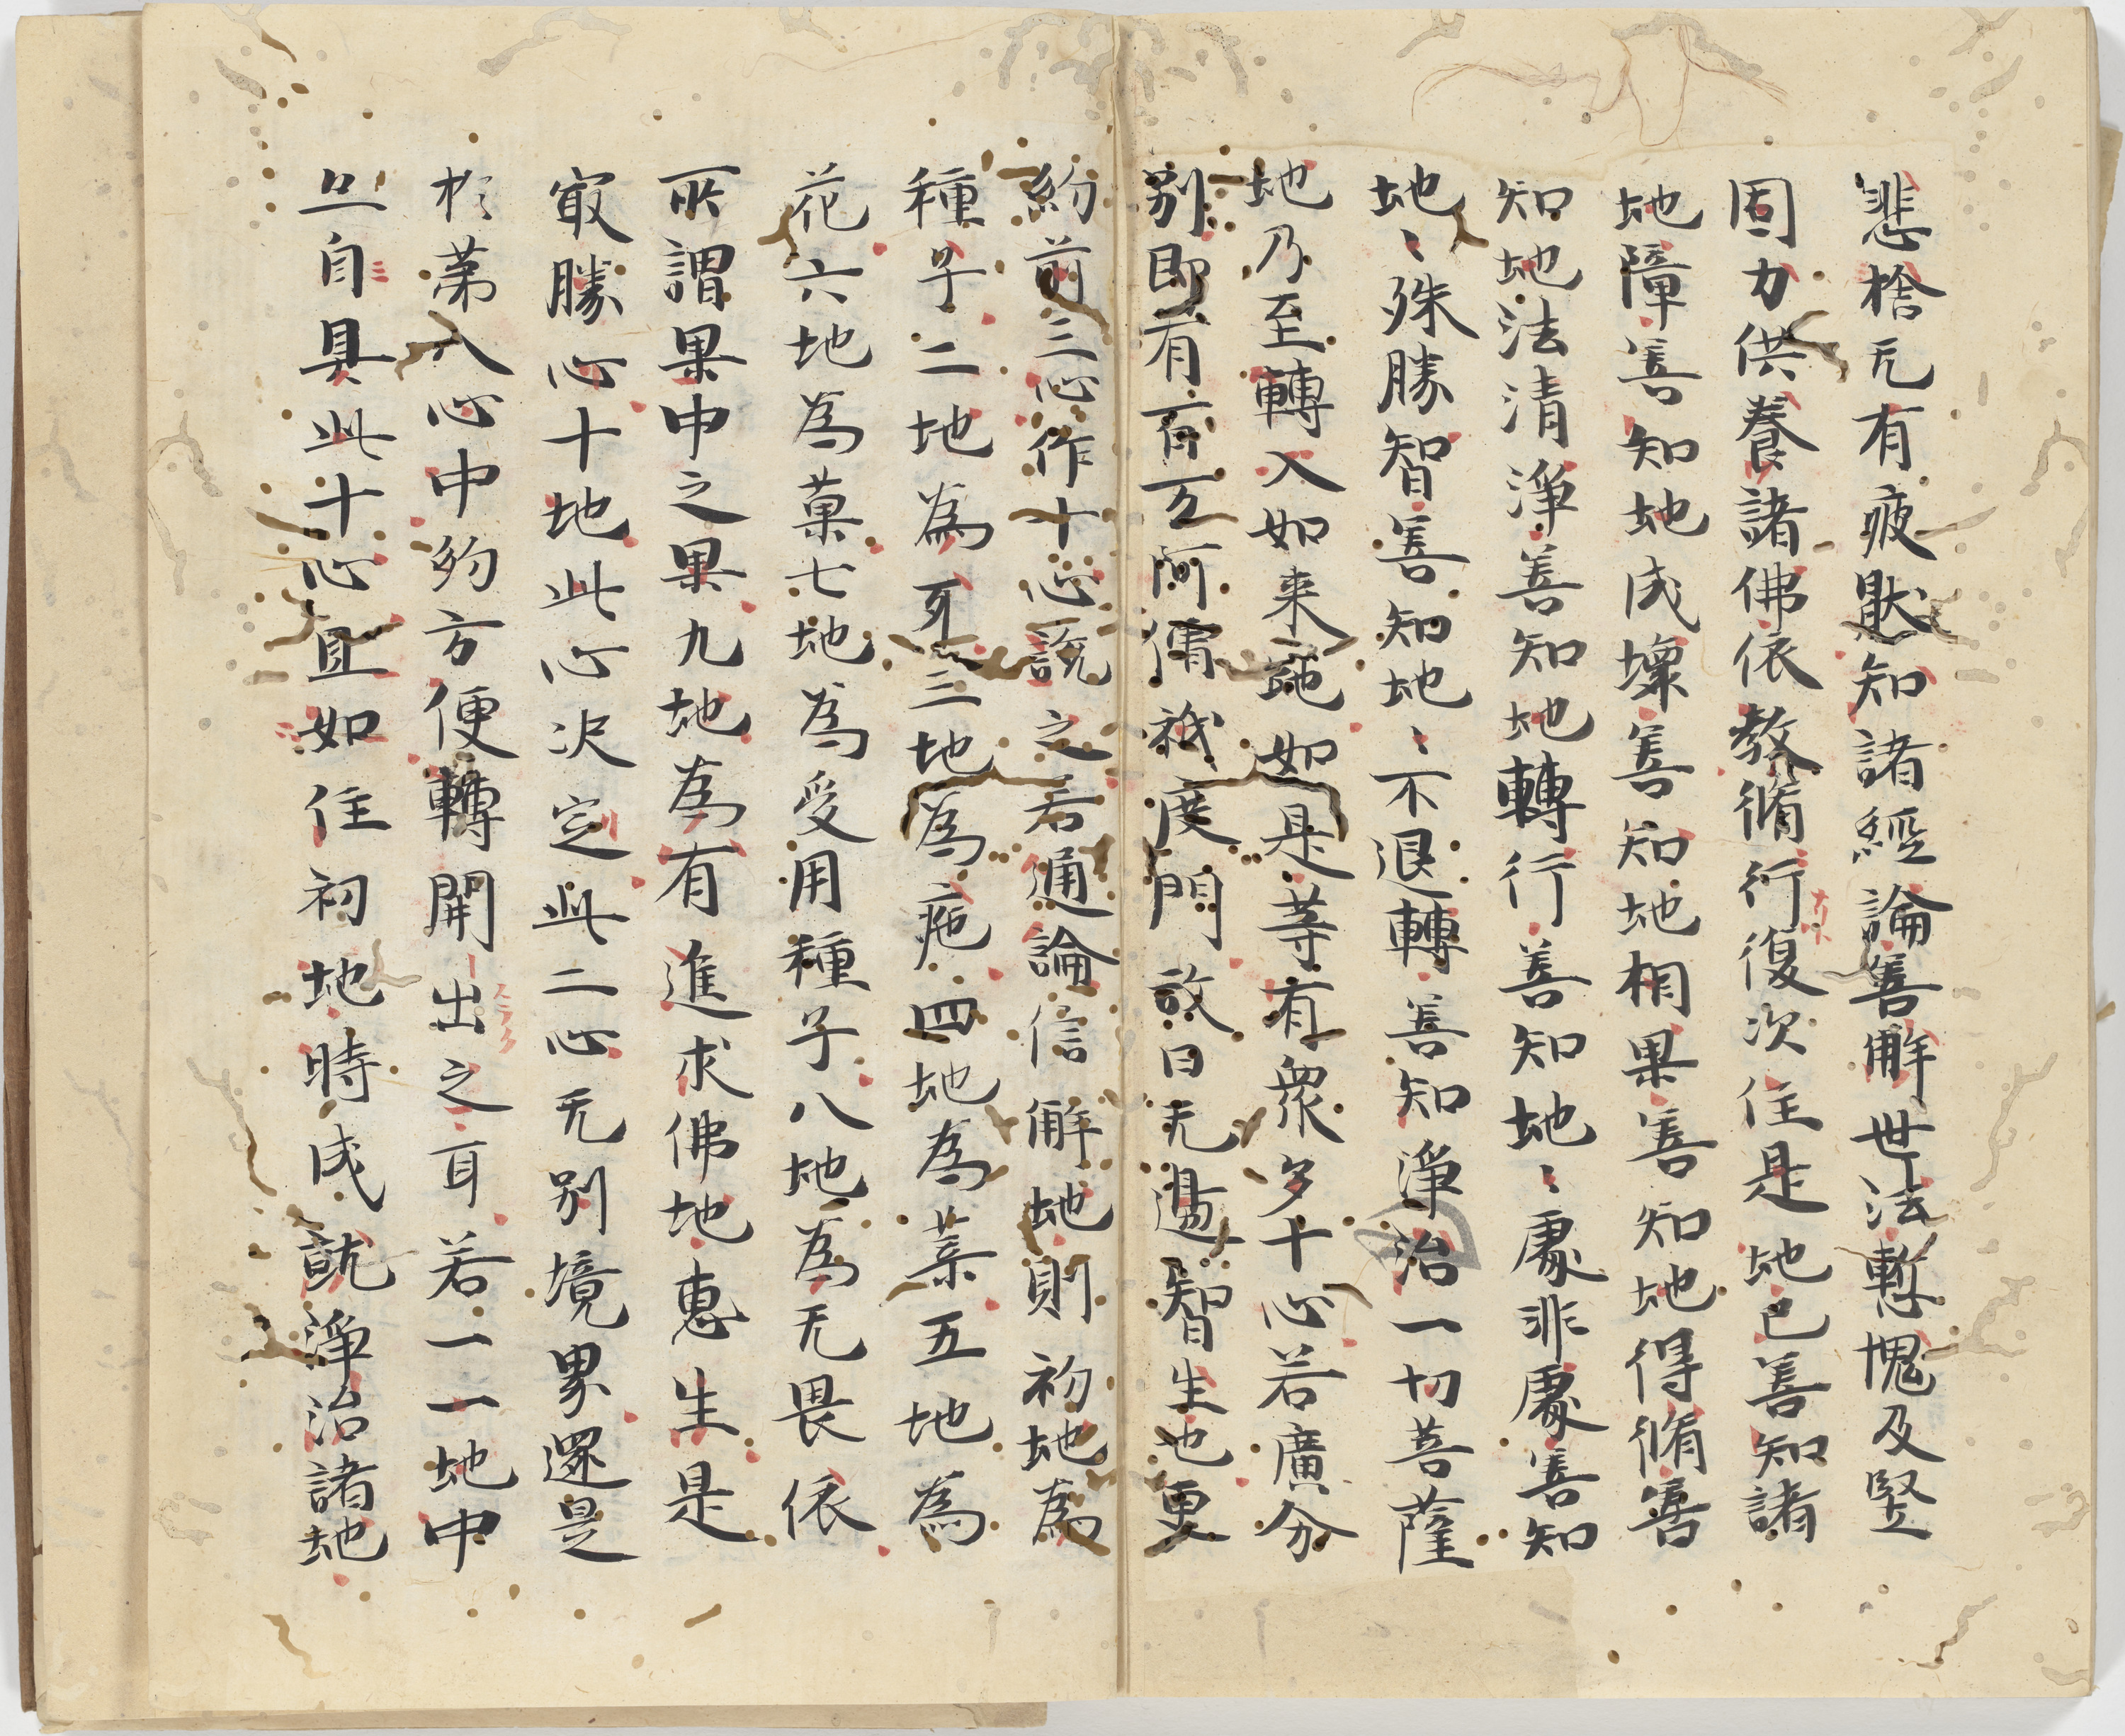 悲捨无有疲猒知諸經論善解世法慙愧及堅
固力供養諸佛依教脩行復次住是地已善知諸
地障善知地成壞善知地相果善知地得脩善
知地法清淨善知地轉行善知地〻處非處善知
地〻殊勝智善知地〻不退轉善知淨治一切菩薩
地乃至轉入如来地如是等有衆多十心若廣分
別即有百万阿僧祇度門故曰无邊智生也更
約前三心作十心說之若通論信解地則初地為
種子二地為牙三地為疱四地為葉五地為
花六地為菓七地為受用種子八地為无畏依
所謂果中之果九地為有進求佛地惠生是
冣勝心十地此心决定此二心无別境界還是
於苐八心中約方便轉開出之耳若一一地中
亦自具此十心且如住初地時成就淨治諸地